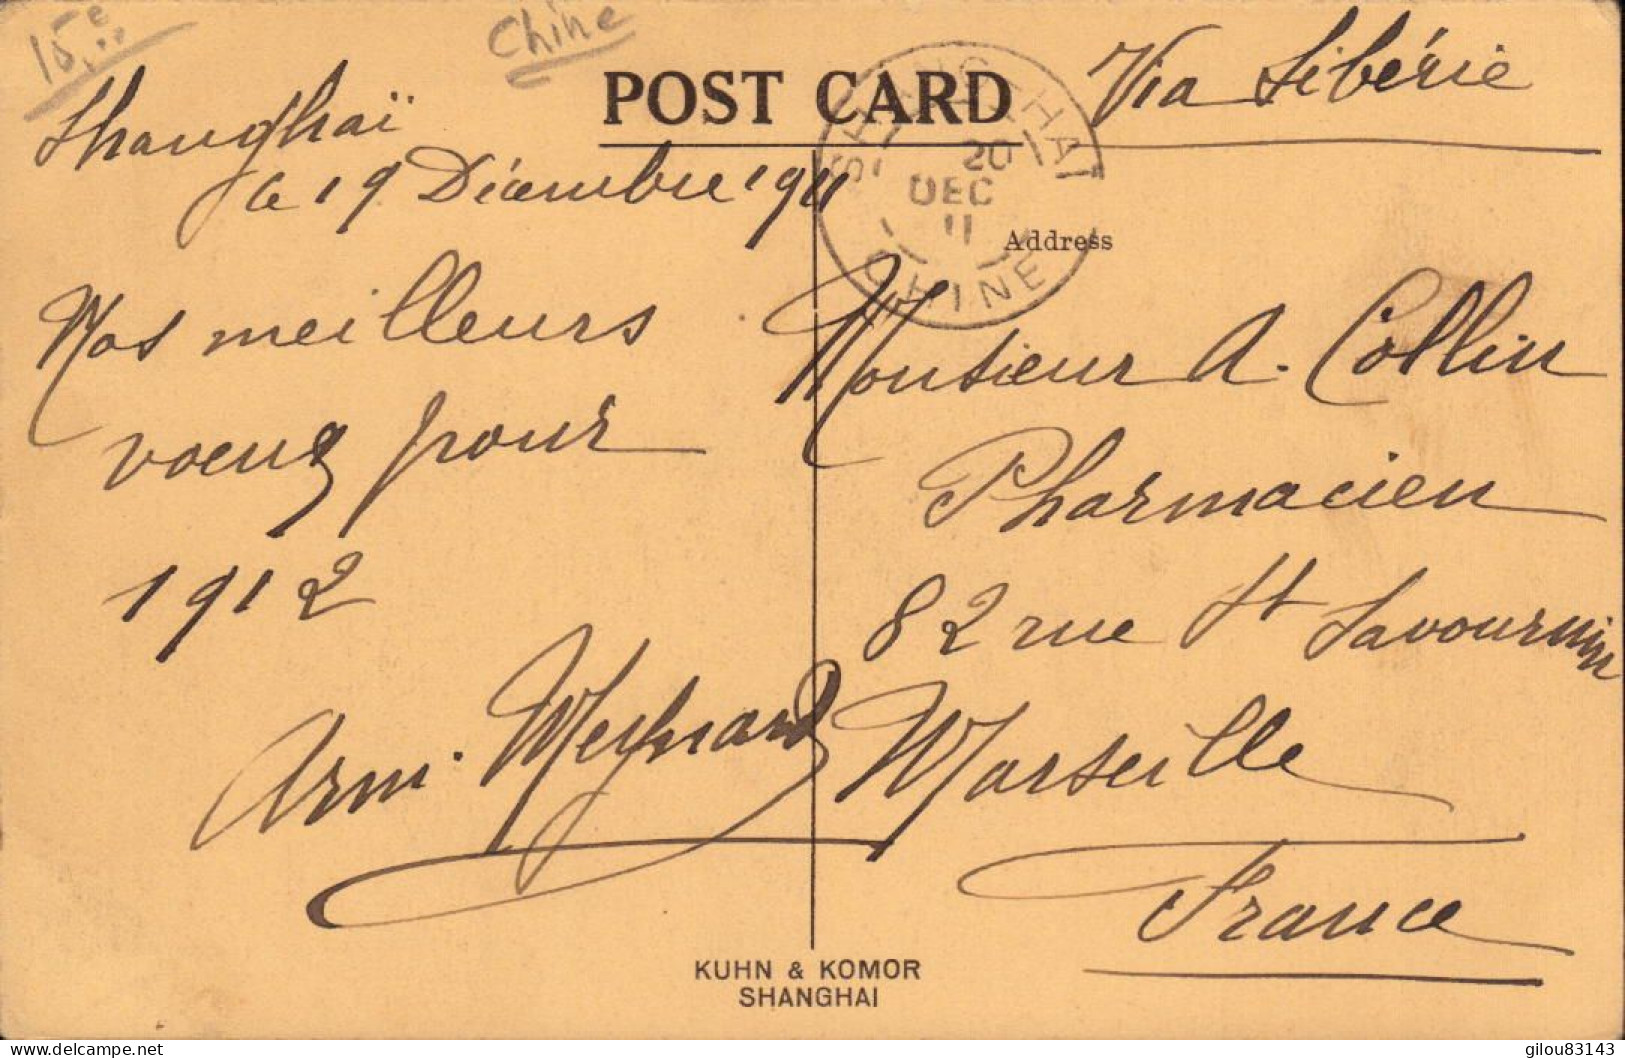 15.e
Chine
POST CARD
Via Sibérie
SHANG-HAI
20
DEC
11
CHINE
Shanghaï
le 19 Décembre 1911
Nos meilleurs
voeux pour
1912
Address
Monsieur A. Collin
Pharmacien
82 rue St Savournin
Marseille
France
KUHN & KOMOR
SHANGHAI
www.delcampe.net
gilou83143